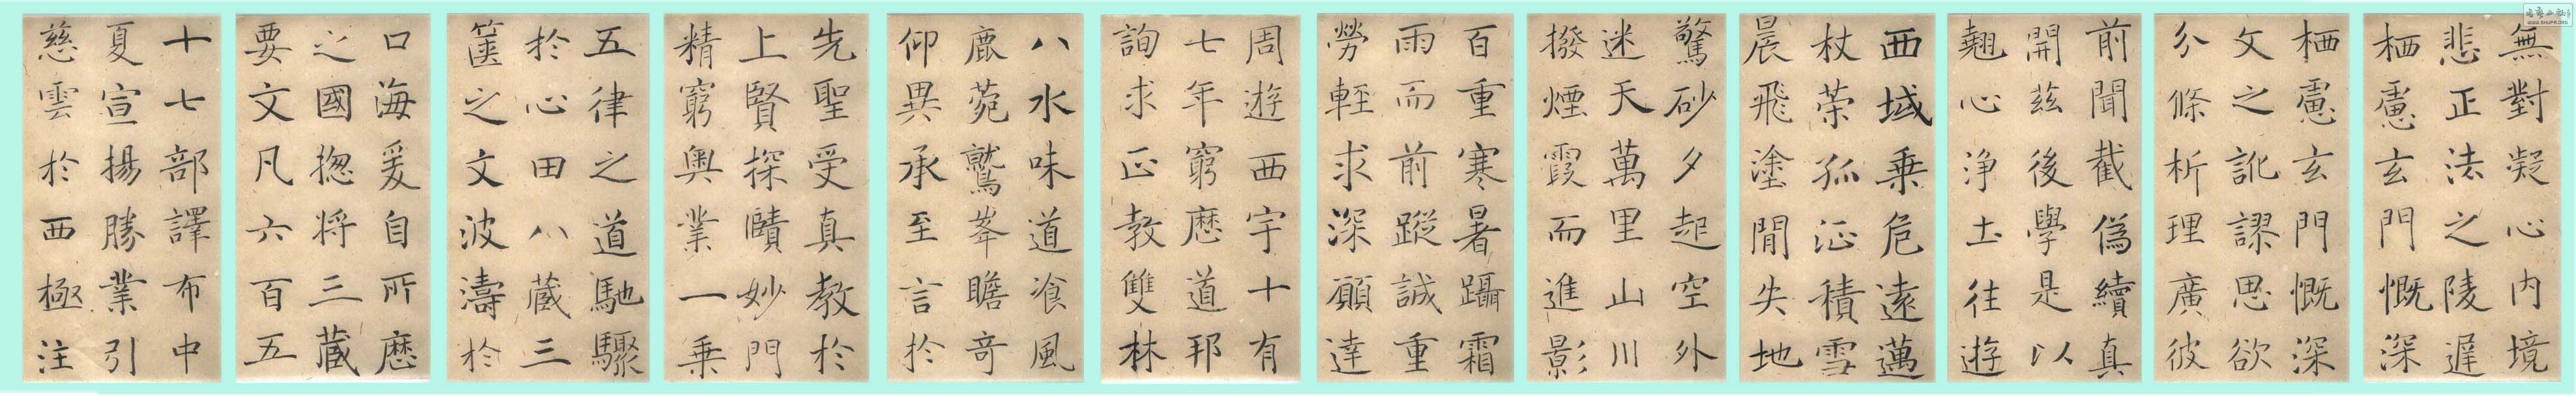 無對凝心内境
悲正法之陵遲
栖慮玄門慨深
栖慮玄門慨深
文之訛謬思欲
分條析理廣彼
前聞截偽續真
開茲後學是以
翹心淨土往遊
西域乗危遠邁
杖策孤征積雪
晨飛塗間失地
驚砂夕起空外
迷天萬里山川
撥煙霞而進影
百重寒暑躡霜
雨而前蹤誠重
勞輕求深願達
周遊西宇十有
七年窮歷道邦
詢求正教雙林
八水味道飡風
鹿菀鷲峯瞻奇
仰異承至言於
先聖受真教於
上賢探賾妙門
精窮奧業一乗
五律之道馳驟
於心田八藏三
篋之文波濤於
口海爰自所歷
之國揔将三藏
要文凡六百五
十七部譯布中
夏宣揚勝業引
慈雲於西極注
WWW.SHUFR.ORG